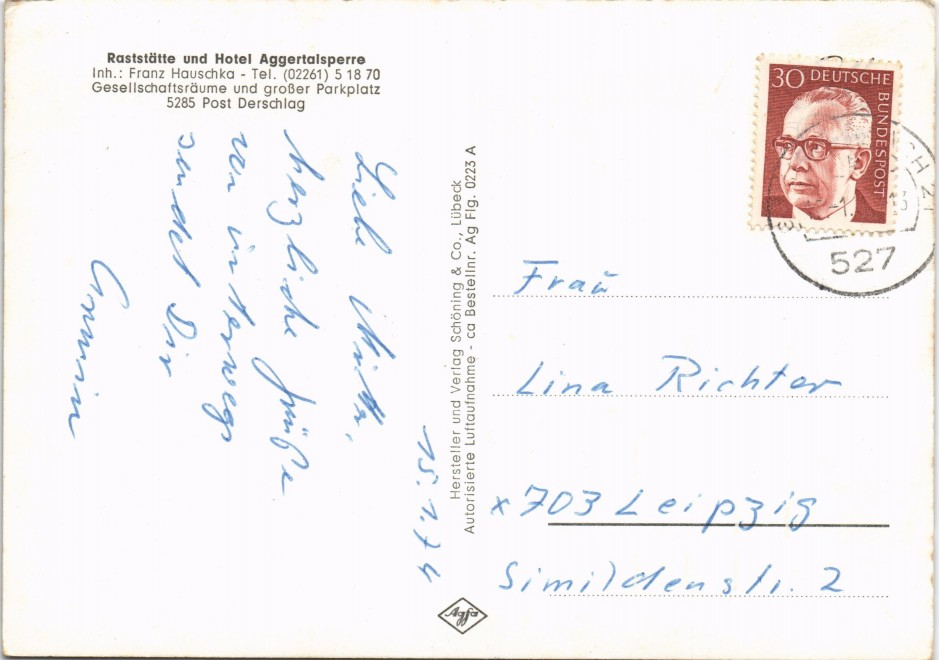 Raststätte und Hotel Aggertalsperre
Inh.: Franz Hauschka - Tel. (02261) 5 18 70
Gesellschaftsräume und großer Parkplatz
5285 Post Derschlag
15.1.74
Liebe
herzliche Grüße
von unterwegs
sendet Dir
Armin
Hersteller und Verlag Schöning & Co., Lübeck
Autorisierte Luftaufnahme - ca Bestellnr. Ag Flg. 0223 A
30 DEUTSCHE
BUNDESPOST
527
Frau
Lina Richter
x703 Leipzig
Simildenstr. 2
Agfa